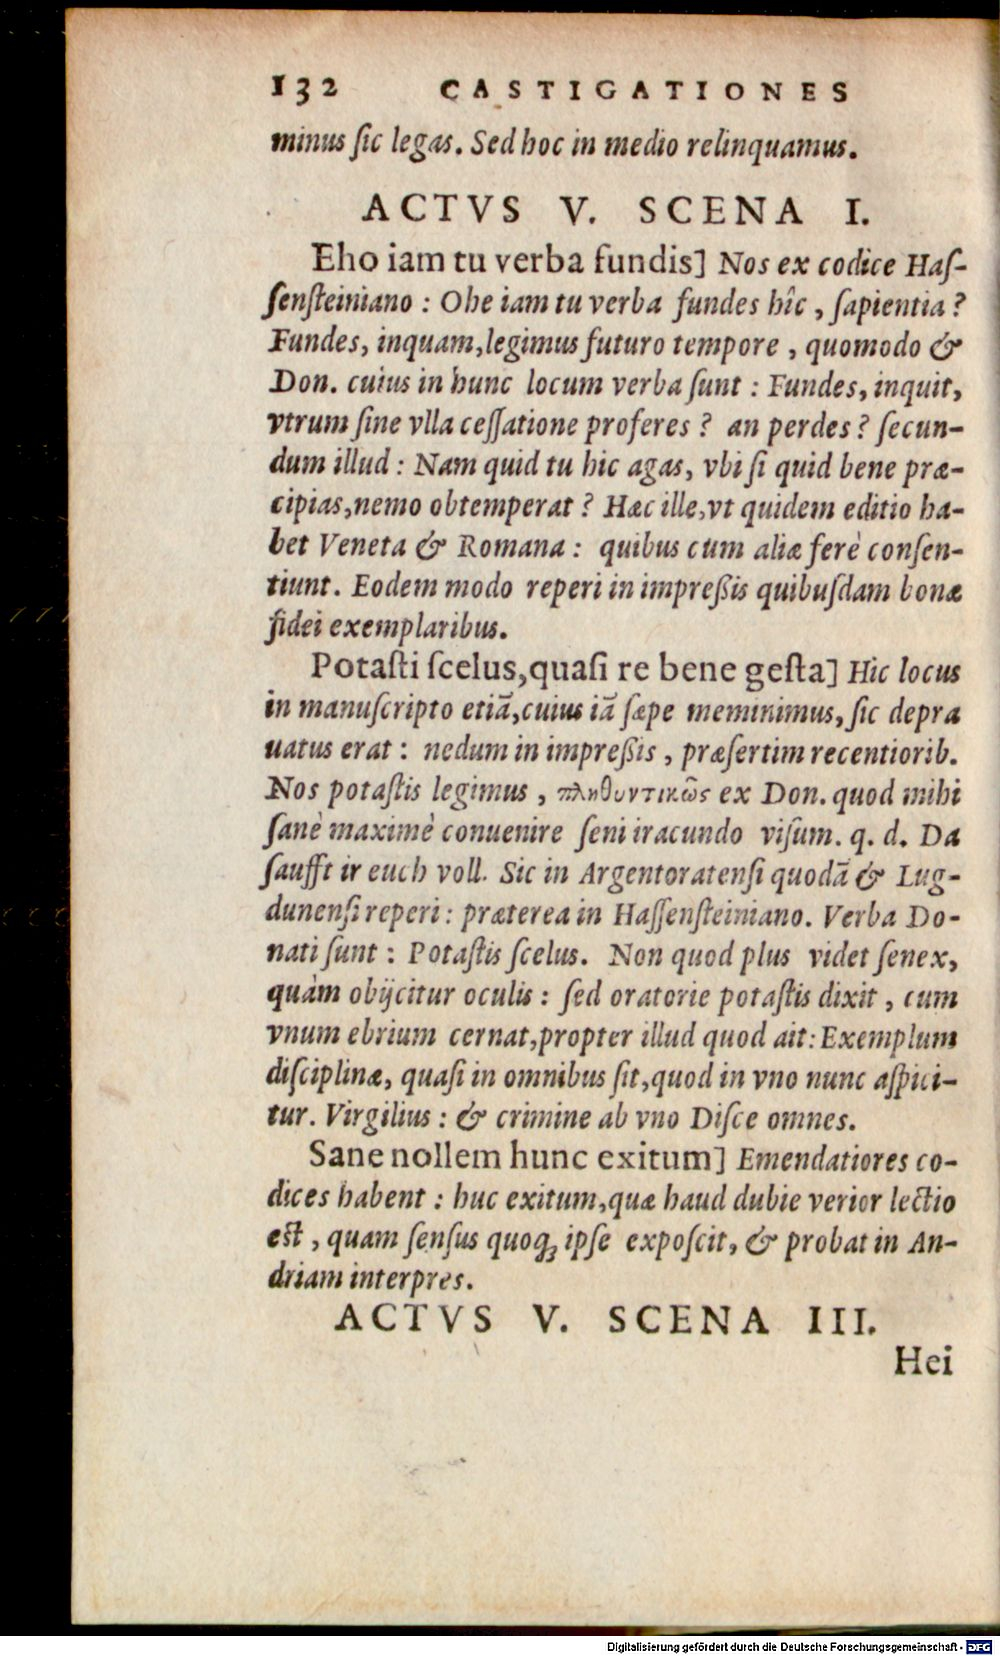 132 CASTIGATIONES
minus ſic legas. Sed hoc in medio relinquamus.
ACTVS V. SCENA I.
Eho iam tu verba fundis] Nos ex codice Haſ-
ſenſteiniano : Ohe iam tu verba fundes hîc , ſapientia ?
Fundes, inquam,legimus futuro tempore , quomodo &
Don. cuius in hunc locum verba ſunt : Fundes, inquit,
vtrum ſine vlla ceſſatione proferes ? an perdes ? ſecun-
dum illud : Nam quid tu hic agas, vbi ſi quid bene præ-
cipias,nemo obtemperat ? Hæc ille,vt quidem editio ha-
bet Veneta & Romana : quibus cum aliæ ferè conſen-
tiunt. Eodem modo reperi in impreßis quibuſdam bonæ
fidei exemplaribus.
Potaſti ſcelus,quaſi re bene geſta] Hic locus
in manuſcripto etiã,cuius iã ſæpe meminimus, ſic depra
uatus erat : nedum in impreßis , præſertim recentiorib.
Nos potaſtis legimus , πληθυντικῶς ex Don. quod mihi
ſanè maximè conuenire ſeni iracundo viſum. q. d. Da
ſaufft ir euch voll. Sic in Argentoratenſi quodã & Lug-
dunenſi reperi : præterea in Haſſenſteiniano. Verba Do-
nati ſunt : Potaſtis ſcelus. Non quod plus videt ſenex,
quàm obijcitur oculis : ſed oratorie potaſtis dixit , cum
vnum ebrium cernat,propter illud quod ait: Exemplum
diſciplinæ, quaſi in omnibus ſit,quod in vno nunc aſpici-
tur. Virgilius : & crimine ab vno Diſce omnes.
Sane nollem hunc exitum] Emendatiores co-
dices habent : huc exitum,quæ haud dubie verior lectio
eſt , quam ſenſus quoq; ipſe expoſcit, & probat in An-
driam interpres.
ACTVS V. SCENA III.
Hei
Digitalisierung gefördert durch die Deutsche Forschungsgemeinschaft - DFG